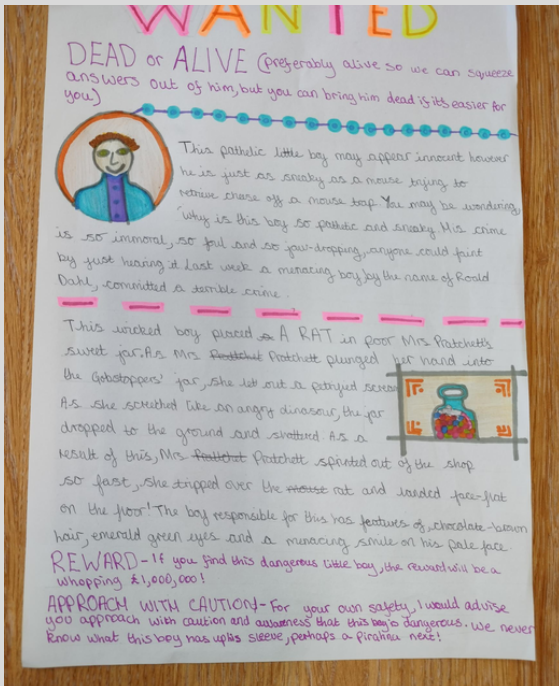 WANTED
DEAD or ALIVE (preferably alive so we can squeeze
answers out of him, but you can bring him dead if it's easier for
you)
This pathetic little boy may appear innocent however
he is just as sneaky as a mouse trying to
retrieve chese off a mouse trap. You may be wondering,
'why is this boy so pathetic and sneaky. His crime
is so immoral, so foul and so jaw-dropping, anyone could faint
by just hearing it. Last week a menacing boy, by the name of Roald
Dahl, committed a terrible crime.
This wicked boy placed a A RAT in poor Mrs Pratchett's
sweet jar. As Mrs Prattchet Pratchett plunged her hand into
the Gobstoppers' jar, she let out a petryfied scream
As she screched like an angry dinasour, the jar
dropped to the ground and shattered. As a
result of this, Mrs Prattchet Pratchett sprinted out of the shop
so fast, she tripped over the mouse rat and landed face-flat
on the floor! The boy responsible for this has features of, chocolate-brown
hair, emerald green eyes and a menacing smile on his pale face.
REWARD - If you find this dangerous little boy, the reward will be a
whopping £1,000,000!
APPROACH WITH CAUTION - For your own safety, I would advise
you approach with caution and awareness that this boy is dangerous. We never
know what this boy has up his sleeve, perhaps a pirahna next!